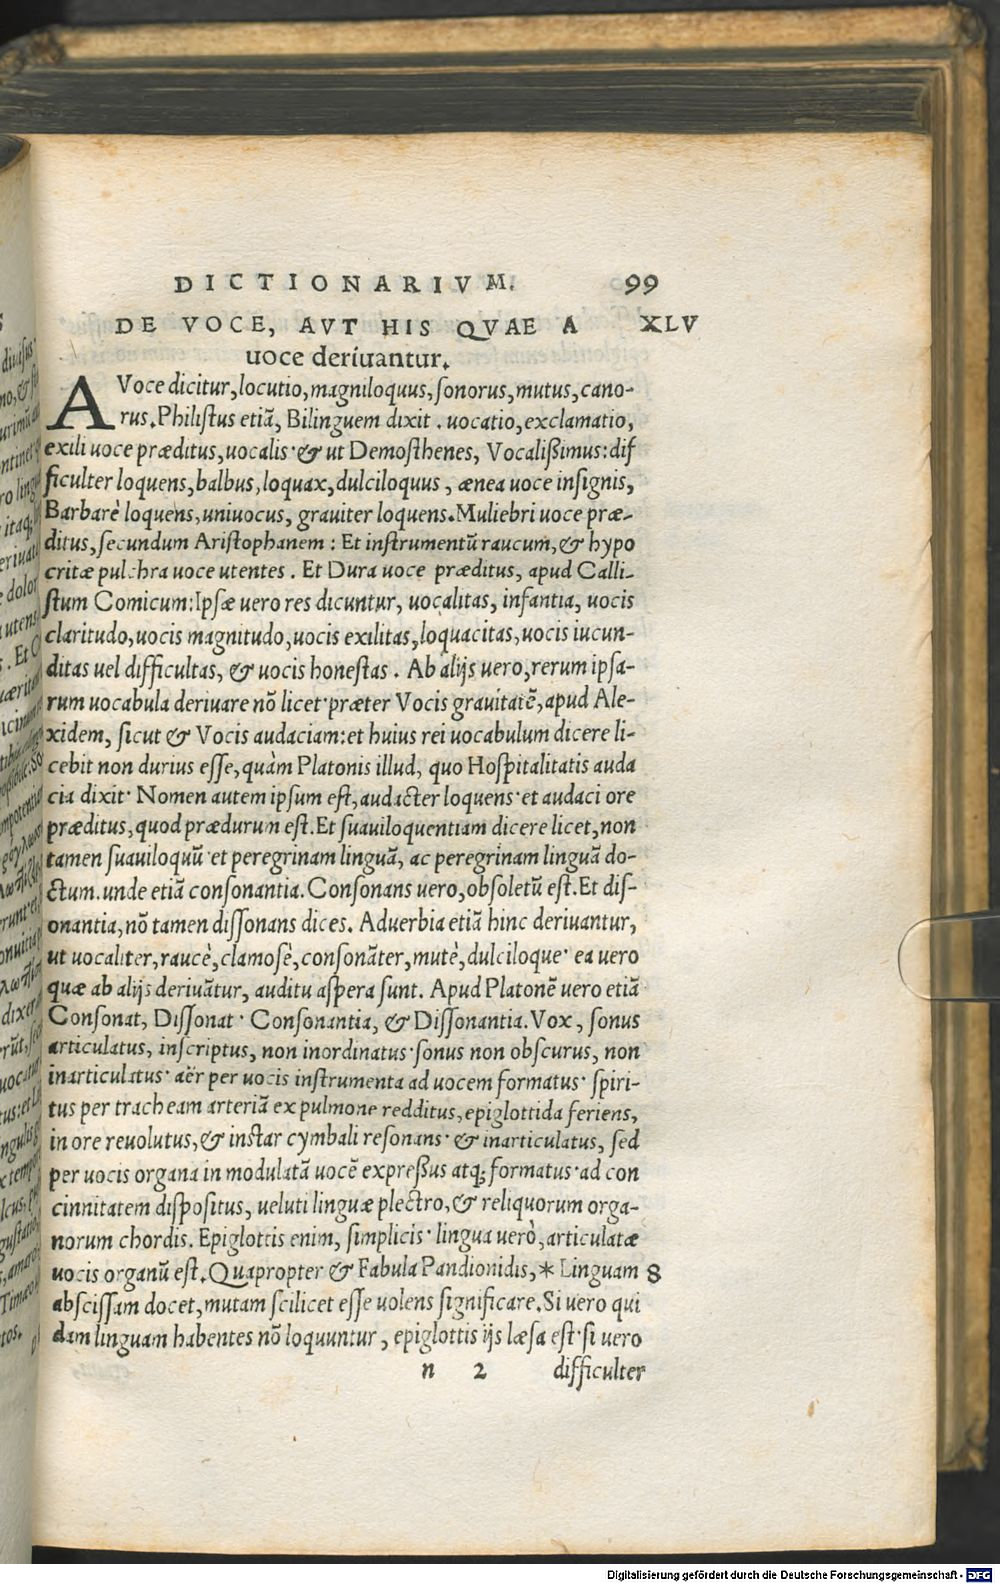 DICTIONARIVM. 99
DE VOCE, AVT HIS QVAE A XLV
uoce deriuantur.
A Voce dicitur, locutio, magniloquus, sonorus, mutus, cano-
rus. Philistus etiā, Bilinguem dixit . uocatio, exclamatio,
exili uoce præditus, uocalis· & ut Demosthenes, Vocalißimus: dif
ficulter loquens, balbus, loquax, dulciloquus , ænea uoce insignis,
Barbarè loquens, uniuocus, grauiter loquens. Muliebri uoce præ-
ditus, secundum Aristophanem : Et instrumentū raucum, & hypo
critæ pulchra uoce utentes . Et Dura uoce præditus, apud Calli-
stum Comicum: Ipsæ uero res dicuntur, uocalitas, infantia, uocis
claritudo, uocis magnitudo, uocis exilitas, loquacitas, uocis iucun-
ditas uel difficultas, & uocis honestas . Ab alijs uero, rerum ipsa-
rum uocabula deriuare nō licet· præter Vocis grauitatē, apud Ale-
xidem, sicut & Vocis audaciam: et huius rei uocabulum dicere li-
cebit non durius esse, quàm Platonis illud, quo Hospitalitatis auda
cia dixit· Nomen autem ipsum est, audacter loquens· et audaci ore
præditus, quod prædurum est. Et suauiloquentiam dicere licet, non
tamen suauiloquū· et peregrinam linguā, ac peregrinam linguā do-
ctum. unde etiā consonantia. Consonans uero, obsoletū est. Et dis-
onantia, nō tamen dissonans dices. Aduerbia etiā hinc deriuantur,
ut uocaliter, raucè, clamosè, consonāter, mutè, dulciloque· ea uero
quæ ab alijs deriuātur, auditu aspera sunt. Apud Platonē uero etiā
Consonat, Dissonat· Consonantia, & Dissonantia. Vox , sonus
articulatus, inscriptus, non inordinatus· sonus non obscurus, non
inarticulatus· aër per uocis instrumenta ad uocem formatus· spiri-
tus per tracheam arteriā ex pulmone redditus, epiglottida feriens,
in ore reuolutus, & instar cymbali resonans· & inarticulatus, sed
per uocis organa in modulatā uocē expreßus atq; formatus· ad con
cinnitatem dispositus, ueluti linguæ plectro, & reliquorum orga-
norum chordis. Epiglottis enim, simplicis· lingua uerò, articulatæ
uocis organū est. Quapropter & Fabula Pandionidis, * Linguam 8
abscissam docet, mutam scilicet esse uolens significare. Si uero qui
dam linguam habentes nō loquuntur , epiglottis ijs læsa est· si uero
n 2 difficulter
Digitalisierung gefördert durch die Deutsche Forschungsgemeinschaft - DFG